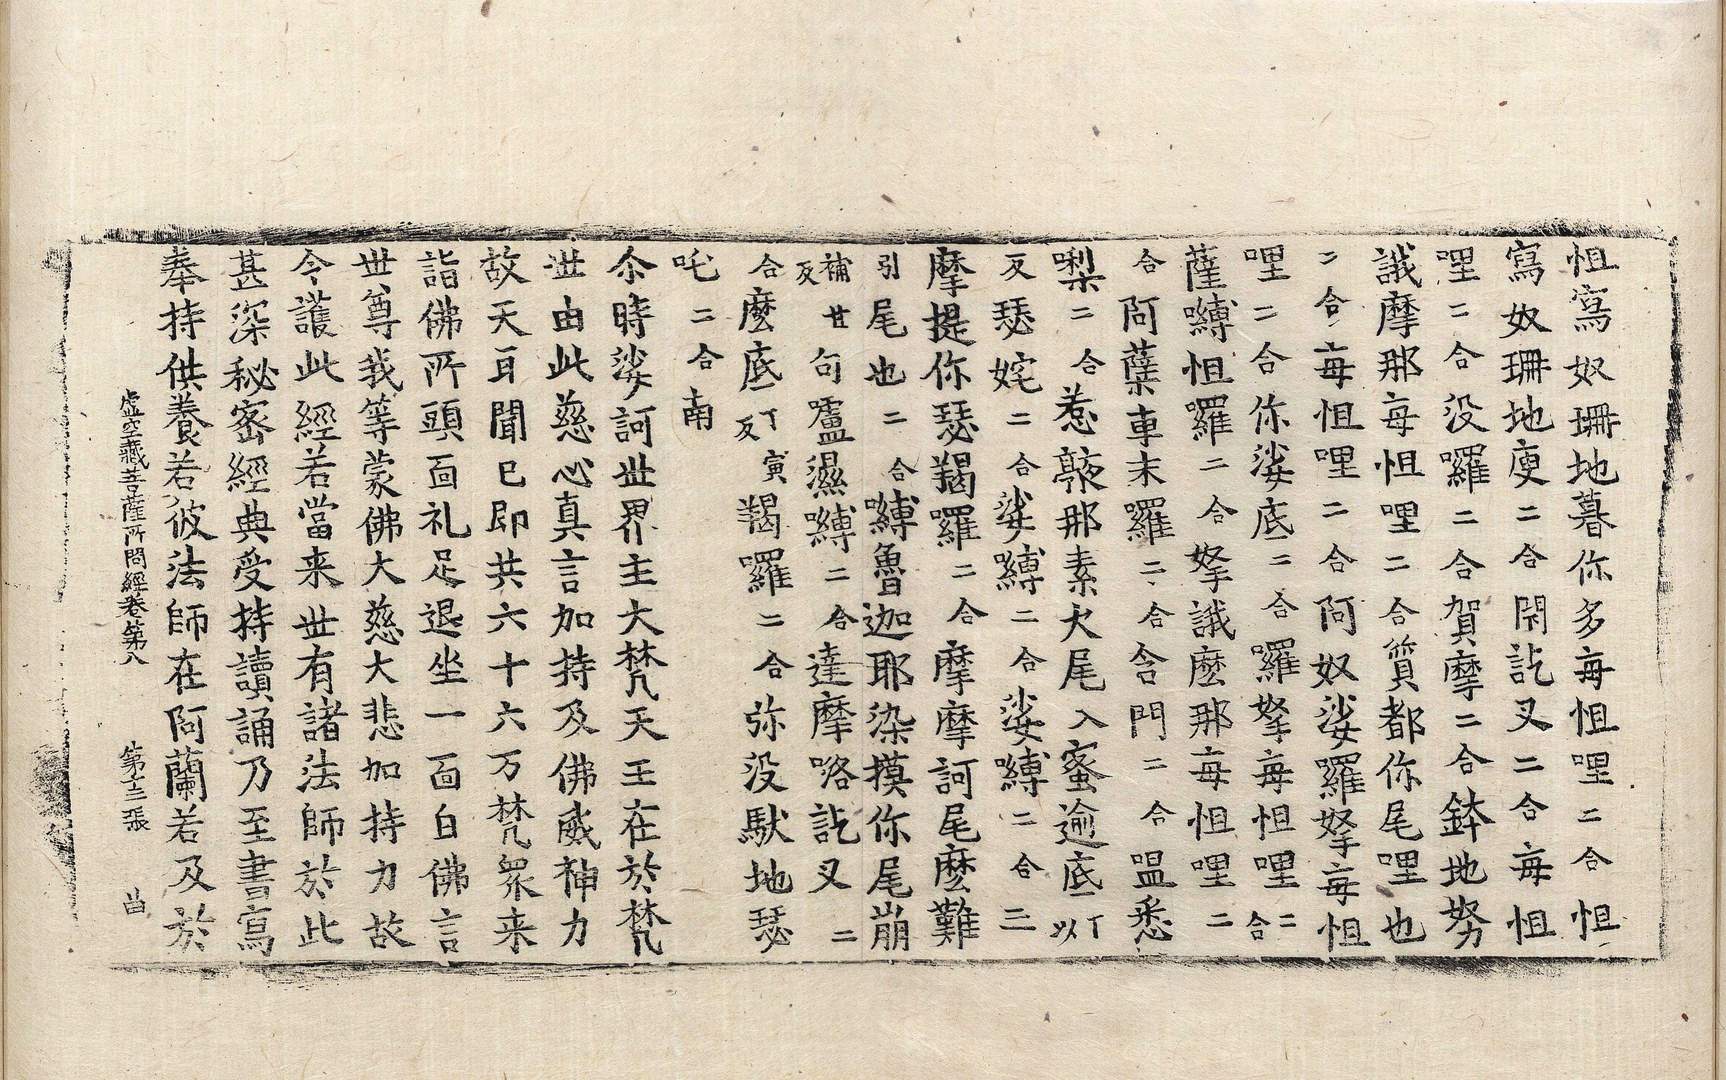 怛寫奴珊地暮你多每怛哩二合怛
寫奴珊地庾二合閇訖叉二合每怛
哩二合没囉二合賀摩二合鉢地努
誐摩那每怛哩二合質都你尾哩也
二合每怛哩二合阿奴娑羅拏每怛
哩二合你娑底二合囉拏每怛哩二合
薩嚩怛羅二合拏誐麽那每怛哩二
合阿蘖車末羅二合含門二合嗢悉
㗚二合惹那素火尾入蜜逾底丁以
反瑟姹二合娑嚩二合娑嚩二合三
摩提你瑟羯羅二合摩摩訶尾麽難
引尾也二合嚩魯迦耶染摸你尾崩
補甘反句嚧濕嚩二合達摩咯訖叉二
合麽底丁寅反羯囉二合弥没馱地瑟
吒二合南
尒時娑訶世界主大梵天王在於梵
世由此慈心真言加持及佛威神力
故天耳聞已即共六十六万梵衆来
詣佛所頭面礼足退坐一面白佛言
世尊我等蒙佛大慈大悲加持力故
今護此經若當来世有諸法師於此
甚深秘密經典受持讀誦乃至書寫
奉持供養若彼法師在阿蘭若及於
虚空藏菩薩所問經卷第八 第十三張